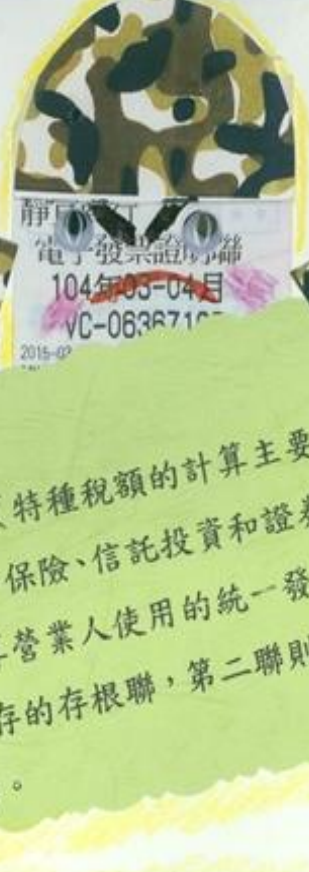 電子發票證明聯
104年03-04月
VC-0636710
2015-03
特種稅額的計算主要
保險、信託投資和證券
營業人使用的統一發
存的存根聯，第二聯則
。